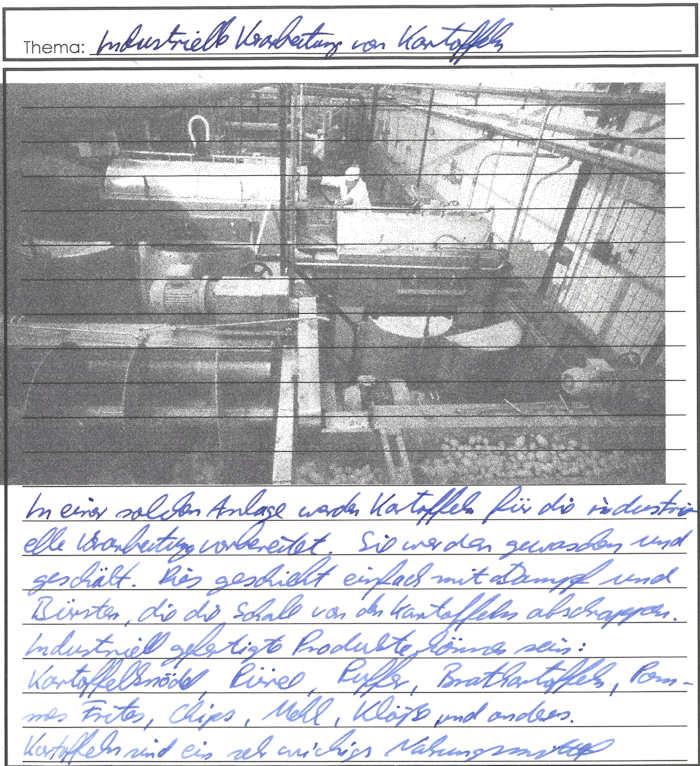 Thema: Industrielle Verarbeitung von Kartoffeln
In einer solchen Anlage werden Kartoffeln für die industri-
elle Verarbeitung vorbereitet. Sie werden gewaschen und
geschält. Dies geschieht einfach mit Dampf und
Bürsten, die die Schale von den Kartoffeln abschrappen.
Industriell gefertigte Produkte können sein:
Kartoffelknödel, Püree, Puffer, Bratkartoffeln, Pom-
mes Frites, Chips, Mehl, Klöße und anderes.
Kartoffeln sind ein sehr wichtiges Nahrungsmittel